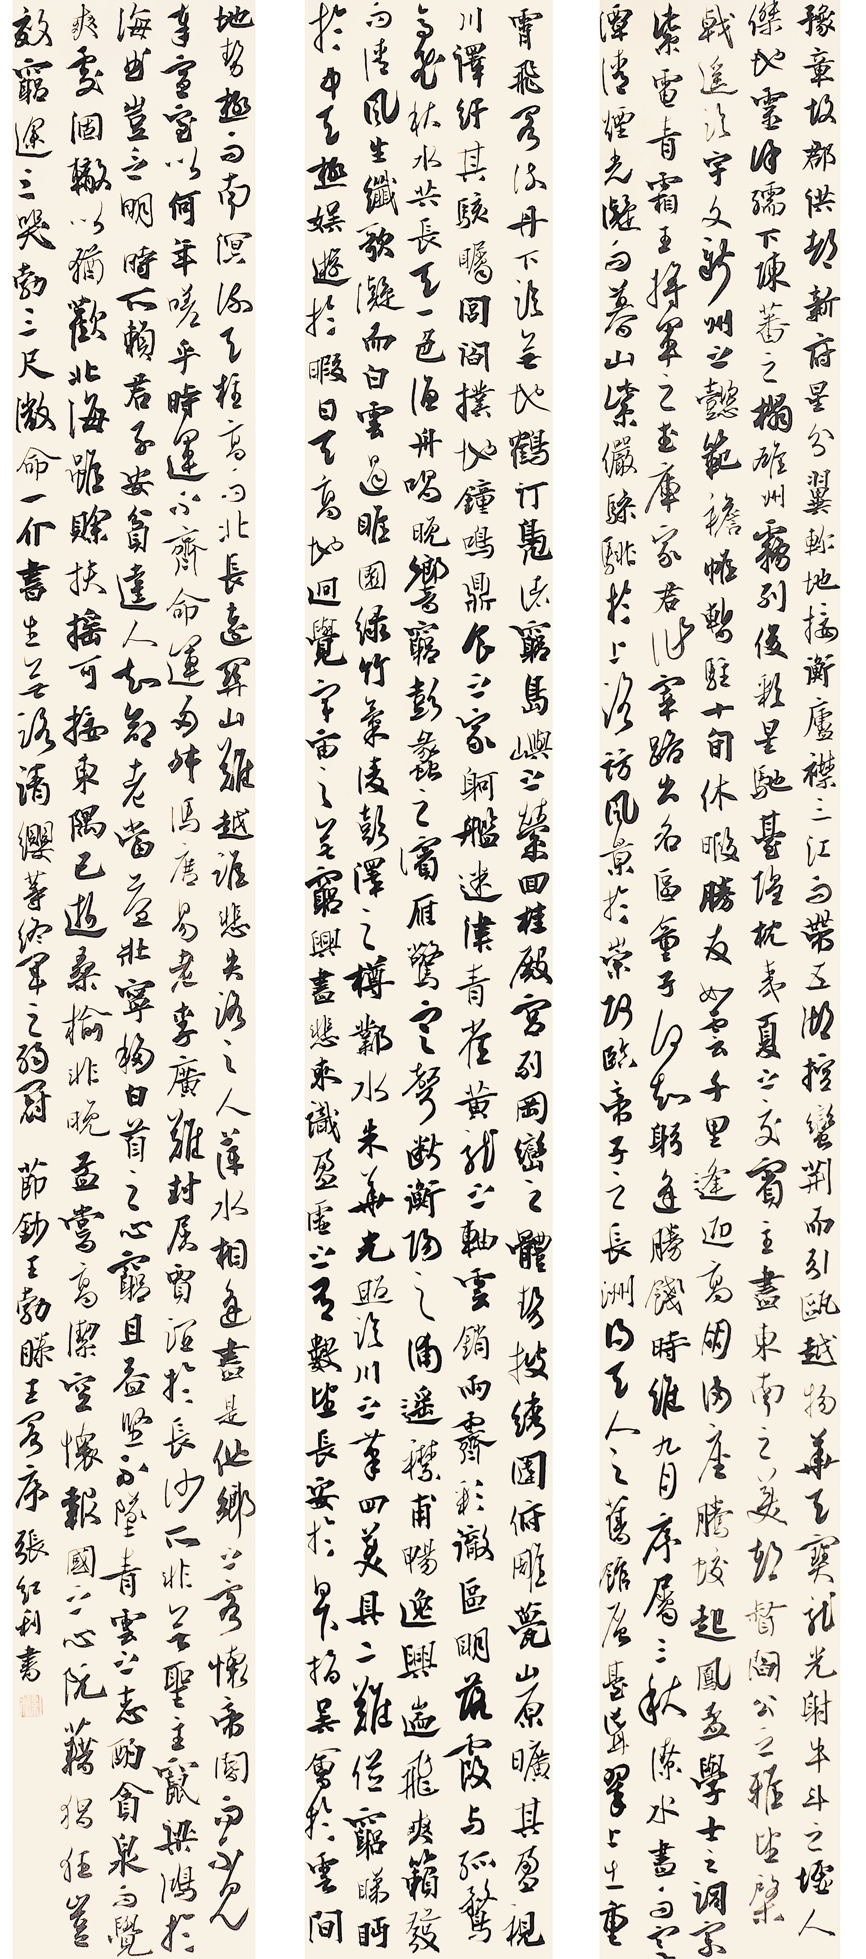 豫章故郡洪都新府星分翼軫地接衡廬襟三江而帶五湖控蠻荆而引甌越物華天寶龍光射牛斗之墟人
傑地靈徐孺下陳蕃之榻雄州霧列俊彩星馳臺隍枕夷夏之交賓主盡東南之美都督閻公之雅望棨
戟遥臨宇文新州之懿範襜帷暫駐十旬休暇勝友如雲千里逢迎高朋滿座騰蛟起鳳孟學士之詞宗
紫電青霜王將軍之武庫家君作宰路出名區童子何知躬逢勝餞時維九月序屬三秋潦水盡而寒
潭清煙光凝而暮山紫儼驂騑於上路訪風景於崇阿臨帝子之長洲得天人之舊館層臺聳翠上出重
霄飛閣流丹下臨無地鶴汀鳧渚窮島嶼之縈回桂殿宫列岡巒之體勢披绣闥俯雕甍山原曠其盈視
川澤紆其駭矚閭閻撲地鐘鳴鼎食之家舸艦迷津青雀黄龍之軸雲銷雨霽彩徹區明落霞与孤鶩
齊飛秋水共長天一色漁舟唱晚響窮彭蠡之濱雁驚寒聲断衡陽之浦遥襟甫暢逸興遄飛爽籟發
而清風生纖歌凝而白雲遏睢園綠竹氣凌彭澤之樽鄴水朱華光照臨川之筆四美具二難並窮睇眄
於中天極娱遊於暇日天高地迥覺宇宙之無窮興盡悲來識盈虚之有數望長安於日下指吴會於雲間
地勢極而南溟深天柱高而北辰遠關山難越誰悲失路之人萍水相逢盡是他鄉之客懷帝閽而不見
奉宣室以何年嗟乎時運不齊命運多舛馮唐易老李廣難封屈賈誼於長沙而非無聖主竄梁鴻於
海曲豈乏明時所賴君子安貧達人知命老當益壯寧移白首之心窮且益堅不墜青雲之志酌貪泉而覺
爽處涸轍以猶歡北海雖賒扶摇可接東隅已逝桑榆非晚孟嘗高潔空懷報國之心阮籍猖狂豈
效窮途之哭勃三尺微命一介書生無路請纓等終軍之弱冠 節鈔王勃滕王閣序 張紅利書